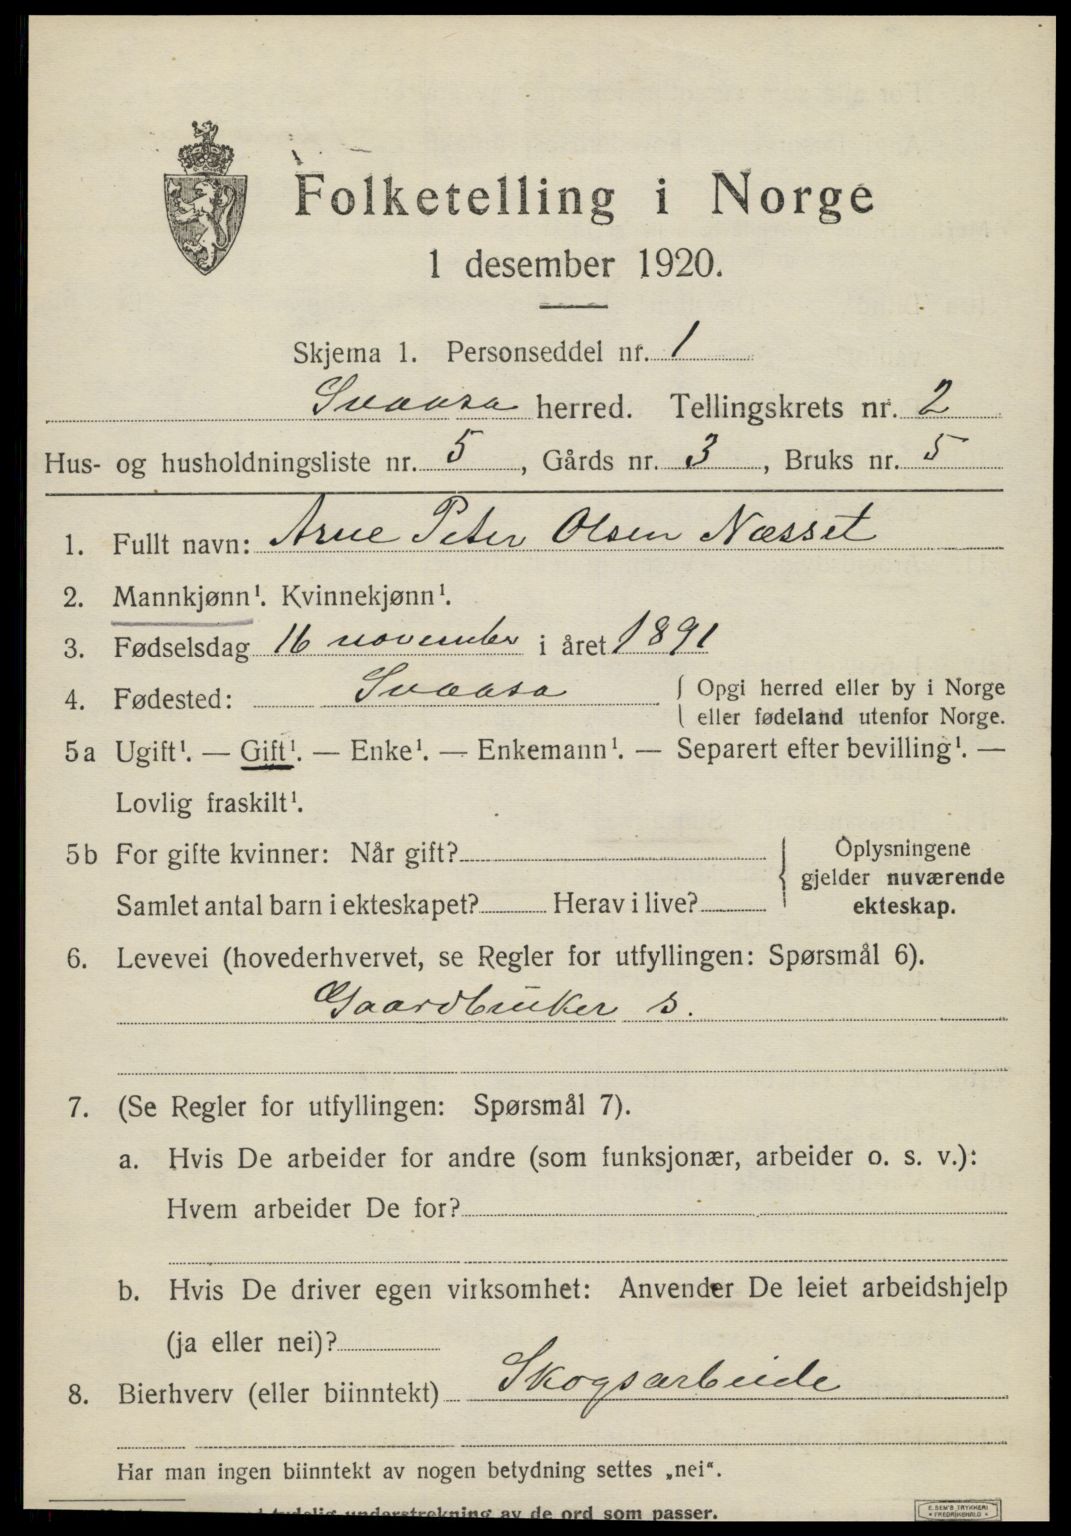 Folketelling i Norge
1 desember 1920.
Skjema 1. Personseddel nr. 1
Svaasa herred. Tellingskrets nr. 2
Hus- og husholdningsliste nr. 5, Gårds nr. 3, Bruks nr. 5
1. Fullt navn: Arne Peter Olsen Næsset
2. Mannkjønn¹. Kvinnekjønn¹.
3. Fødselsdag 16 november i året 1891
4. Fødested: Svaasa { Opgi herred eller by i Norge
eller fødeland utenfor Norge.
5a Ugift¹. — Gift¹. — Enke¹. — Enkemann¹. — Separert efter bevilling¹. —
Lovlig fraskilt¹.
5b For gifte kvinner: Når gift? { Oplysningene
gjelder nuværende
Samlet antal barn i ekteskapet? Herav i live? ekteskap.
6. Levevei (hovederhvervet, se Regler for utfyllingen: Spørsmål 6).
Gaardbruker s.
7. (Se Regler for utfyllingen: Spørsmål 7).
a. Hvis De arbeider for andre (som funksjonær, arbeider o. s. v.):
Hvem arbeider De for?
b. Hvis De driver egen virksomhet: Anvender De leiet arbeidshjelp
(ja eller nei)?
8. Bierhverv (eller biinntekt) Skogsarbeide
Har man ingen biinntekt av nogen betydning settes „nei“.
understrekning av de ord som passer.
E. SEM'S TRYKKERI
FREDRIKSHALD